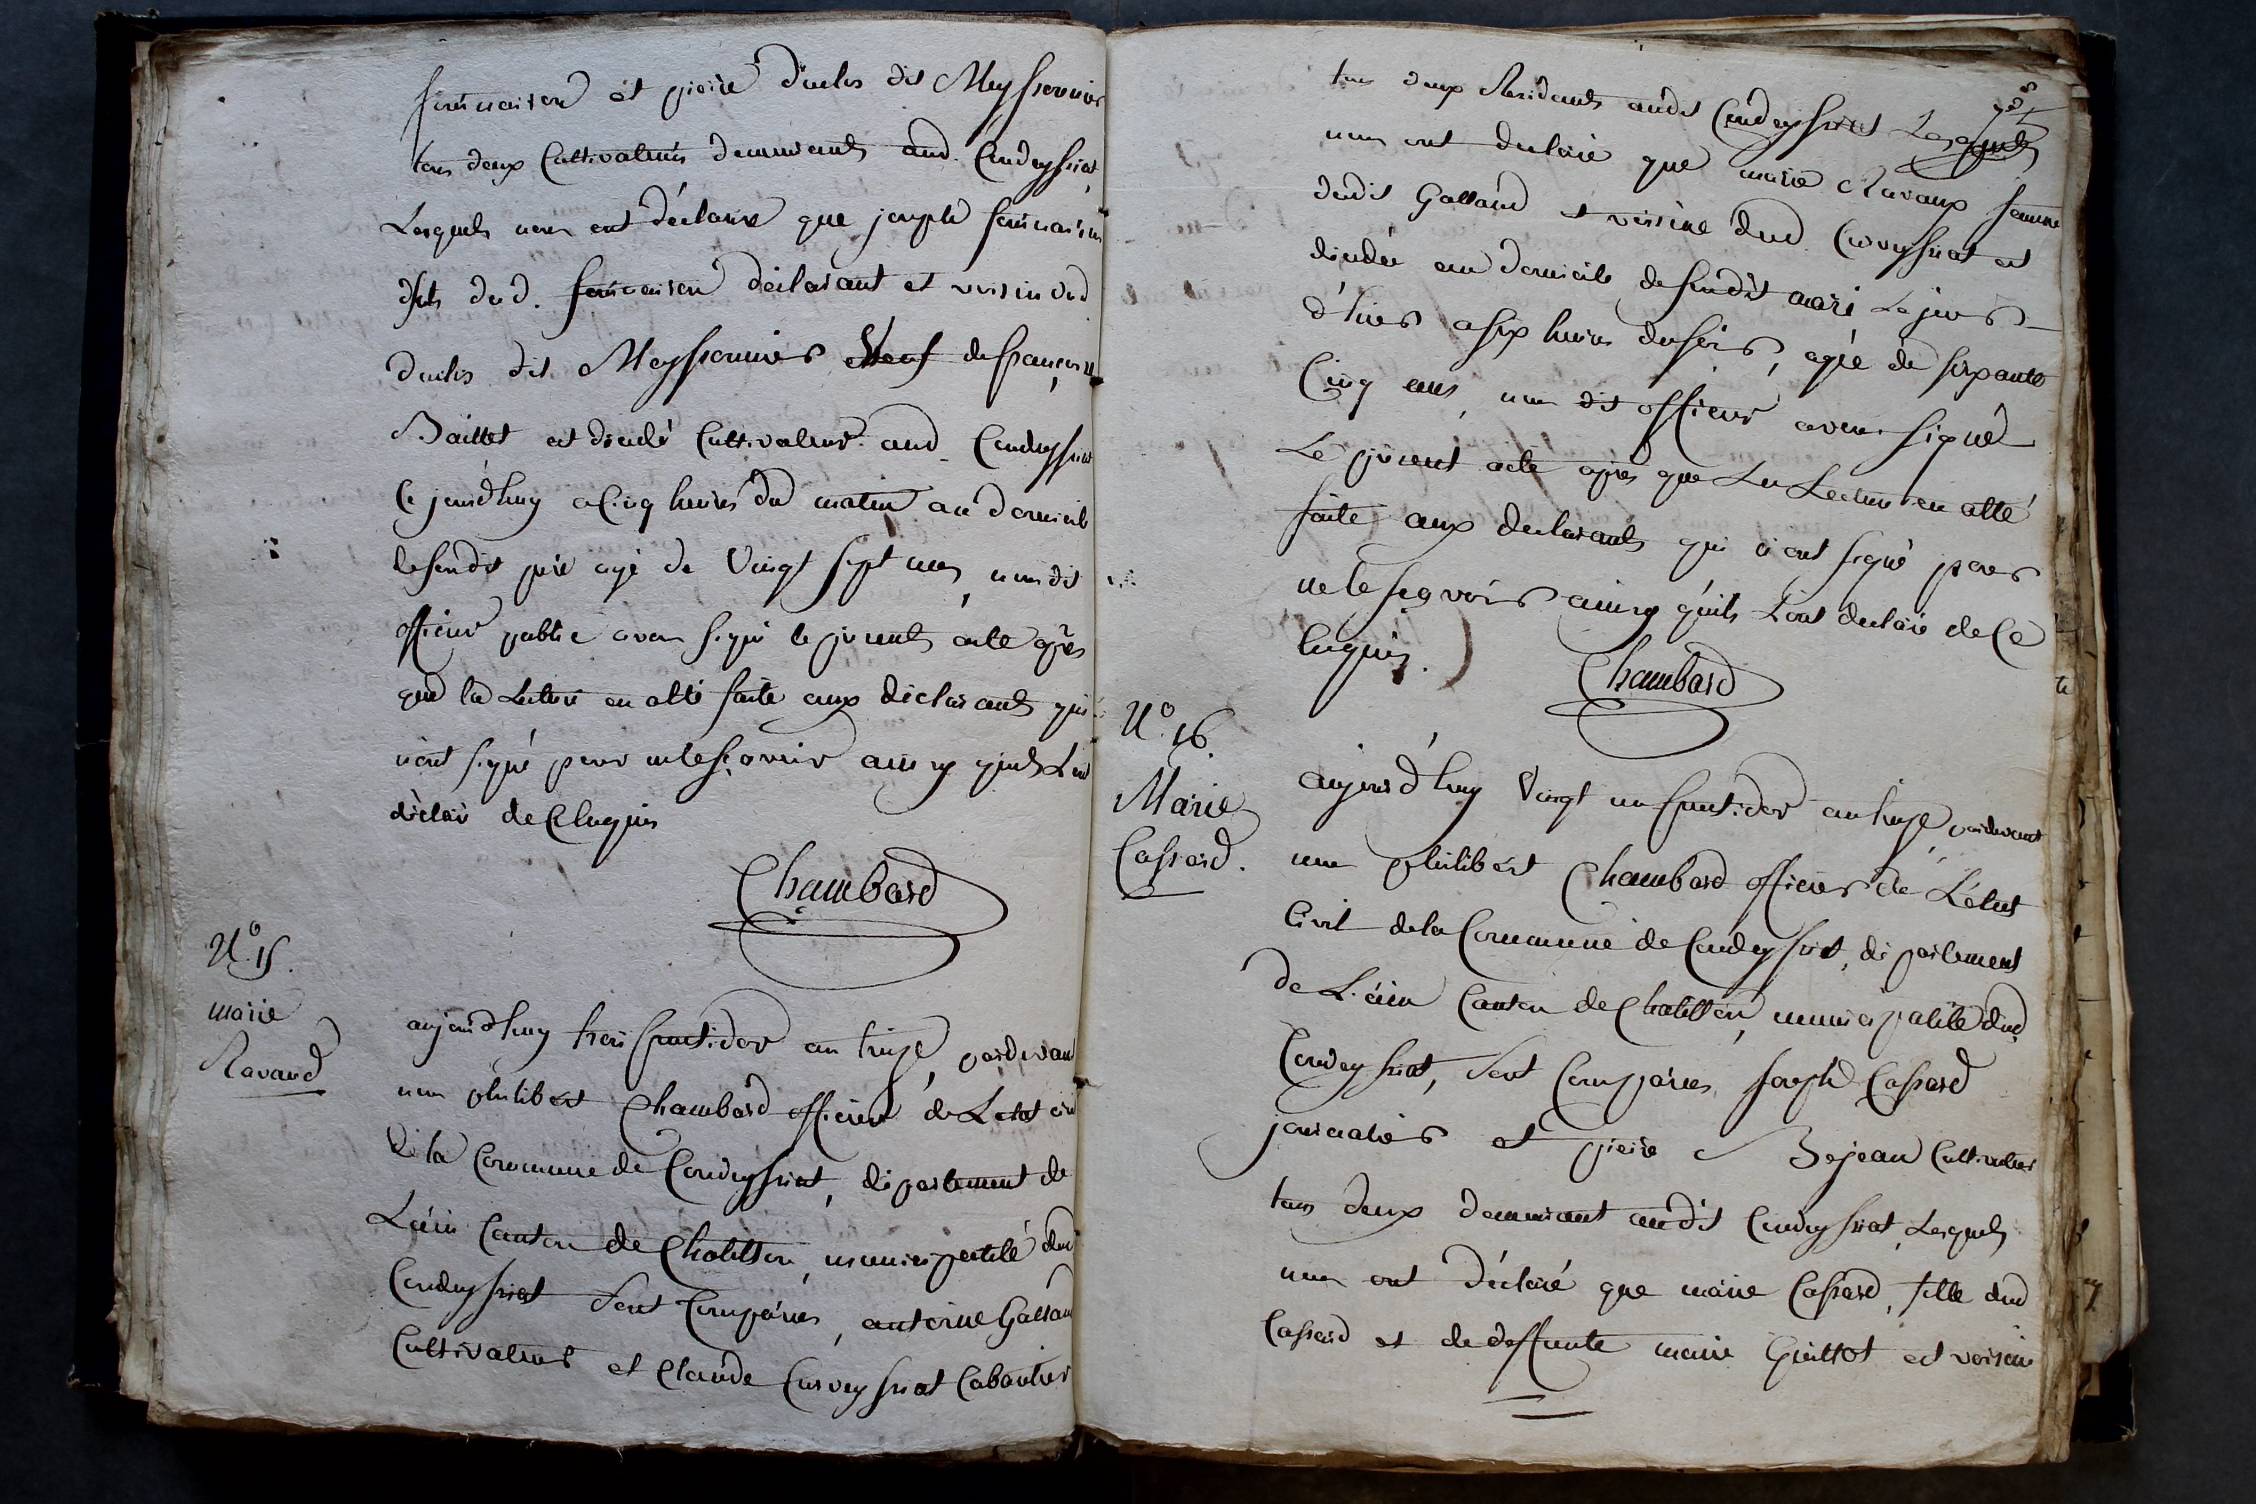 et pierre duclos dit Meyssonnier
tous deux Cultivateurs demeurants aud. Condeyssiat
Lesquels nous ont déclaré que joseph
fils dud. déclarant et voisin dud
duclos dit Meyssonnier Veuf de françoise
Baillet est décédé Cultivateur aud. Condeyssiat
Ce jourd'huy a Cinq heures du matin au domicile
de sondit père agé de Vingt sept ans, nous dit
officier public avons signé le présent acte après
que la Lecture en a été faite aux déclarants qui
n'ont signé pour ne le sçavoir ainsy qu'ils L'ont
déclaré de Ce Enquis
Chambard
N.º 15.
marie
Ravaud
aujourd'huy trois fructidor an treize, pardevant
nous philibert Chambard officier de L'etat civil
de la Commune de Condeyssiat, département de
L'ain Canton de Chatillon, municipalité dud
Condeyssiat Sont Comparus, antoine Galland
Cultivateur et Claude Curveyssiat Cabartier
tous deux Residants audit Condeyssiat Lesquels
nous ont declaré que marie Ravaux femme
dudit Galland et voisine dud. Curveyssiat est
décédée au domicile de sondit mari Le jour
d'hier a six heures du soir, agée de soixante
Cinq ans, nous dit officier avons signé
Le présent acte après que La Lecture en a été
faite aux declarants qui n'ont signé pour
ne le sçavoir ainsy qu'ils L'ont declaré de Ce
Enquis.
Chambard
N.º 16.
Marie
Cassard.
aujourd'huy Vingt un fructidor an treize, pardevant
nous philibert Chambard officier de L'état
Civil de la Commune de Condeyssiat, département
de L'ain Canton de Chatillon, municipalité dud
Condeyssiat, Sont Comparus, Joseph Cassard
journalier et pierre Bejean Cultivateur
tous deux demeurant audit Condeyssiat, Lesquels
nous ont déclaré que marie Cassard, fille dud
Cassard et de deffunte marie Guillot et voisine